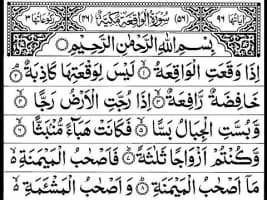 اٰيَاتُهَا ٩٦ (٥٦) سُوْرَةُ الْوَاقِعَةِ مَكِّيَّةٌ (٤٦) رُكُوْعَاتُهَا ٣
بِسْمِ اللّٰهِ الرَّحْمٰنِ الرَّحِيْمِ
اِذَا وَقَعَتِ الْوَاقِعَةُ ۙ﴿١﴾ لَيْسَ لِوَقْعَتِهَا كَاذِبَةٌ ۘ﴿٢﴾
خَافِضَةٌ رَّافِعَةٌ ۙ﴿٣﴾ اِذَا رُجَّتِ الْاَرْضُ رَجًّا ۙ﴿٤﴾
وَّبُسَّتِ الْجِبَالُ بَسًّا ۙ﴿٥﴾ فَكَانَتْ هَبَآءً مُّنْۢبَثًّا ۙ﴿٦﴾
وَّكُنْتُمْ اَزْوَاجًا ثَلٰثَةً ؕ﴿٧﴾ فَاَصْحٰبُ الْمَيْمَنَةِ ۙ۬
مَاۤ اَصْحٰبُ الْمَيْمَنَةِ ؕ﴿٨﴾ وَ اَصْحٰبُ الْمَشْـَٔمَةِ ۙ۬